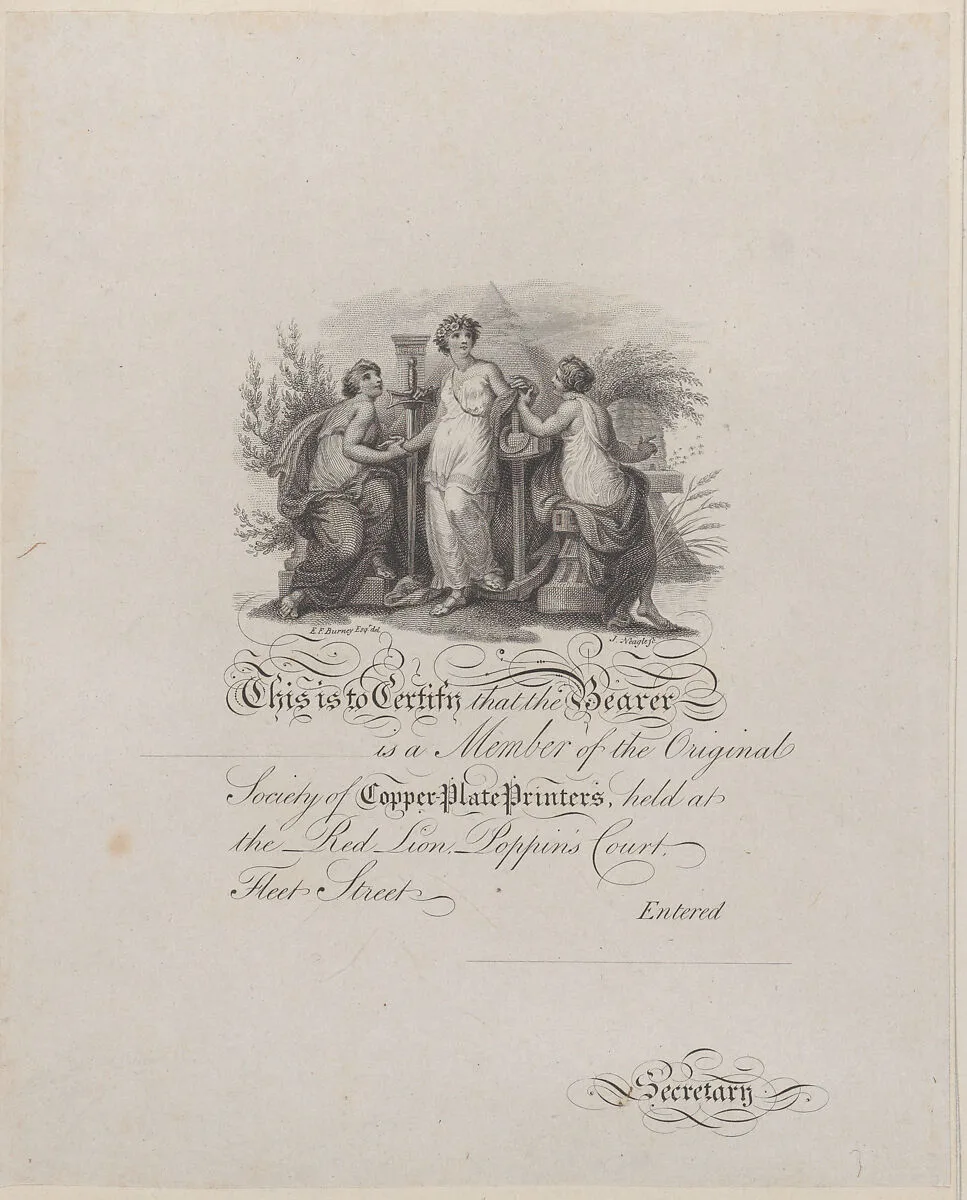 E. F. Burney Esqr. del.
J. Neagle sc.
This is to Certify that the Bearer
is a Member of the Original
Society of Copper-Plate Printers, held at
the Red Lion, Poppin's Court,
Fleet Street
Entered
Secretary